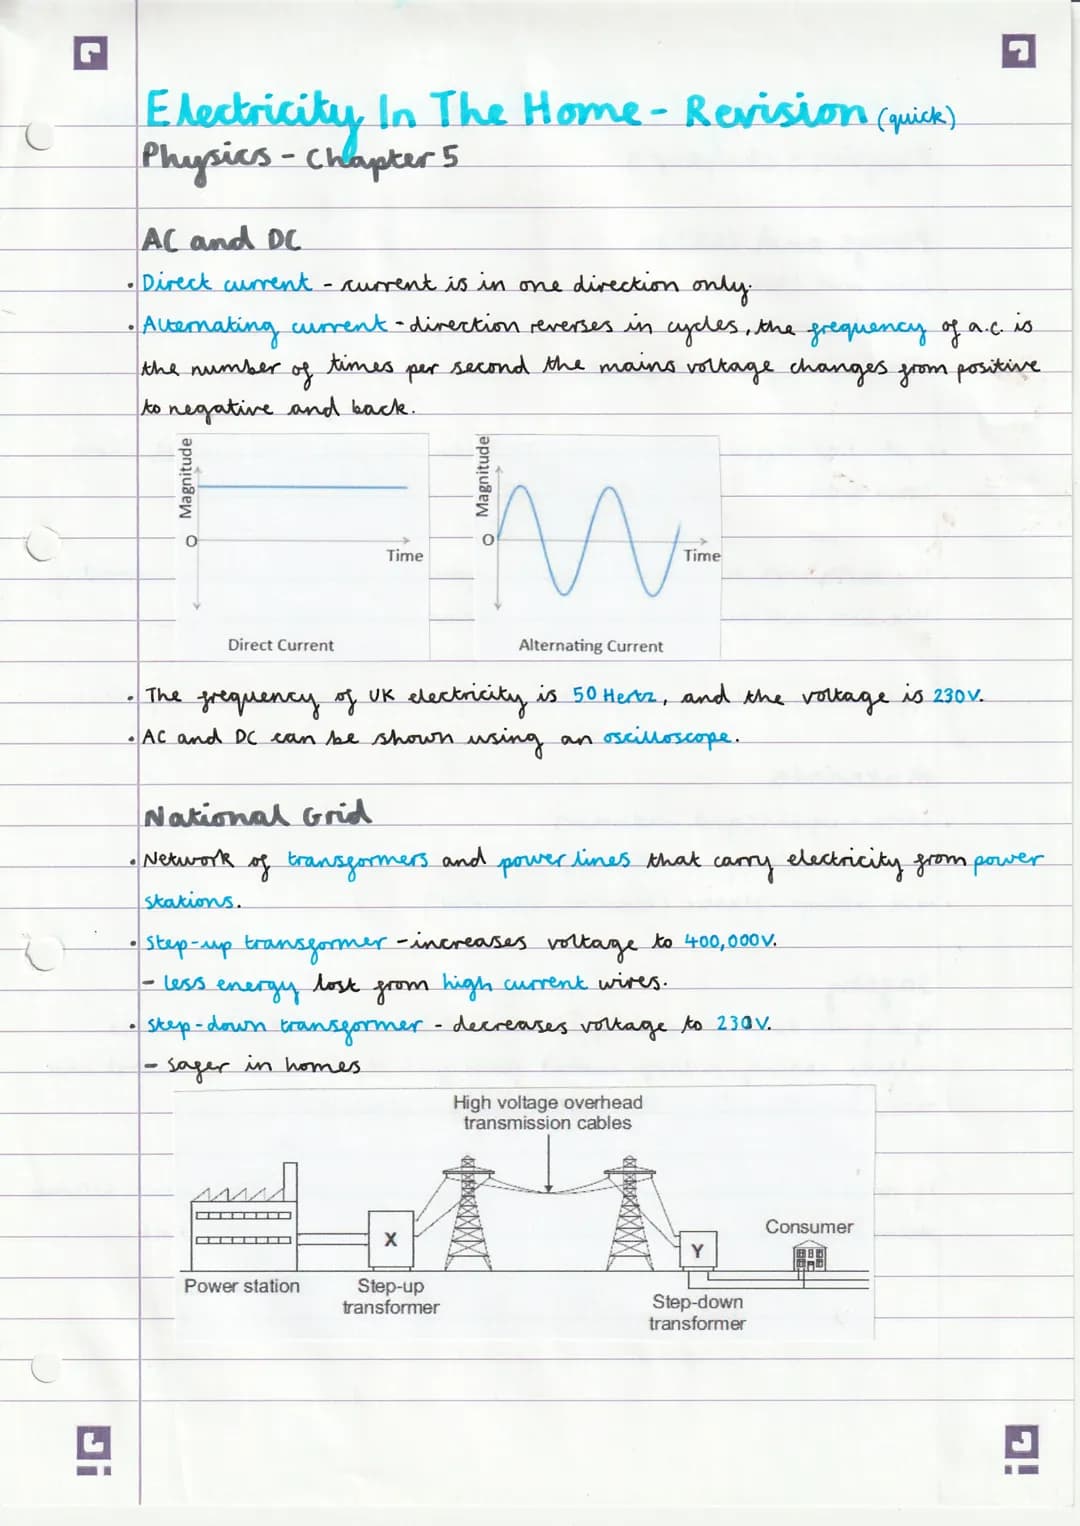 Electricity In The Home - Revision (quick)
Physics - Chapter 5
AC and DC
• Direct current - current is in one direction only.
• Alternating current - direction reverses in cycles, the frequency of a.c. is
the number of times per second the mains voltage changes from positive
to negative and back.
Magnitude
0
Time
Direct Current
Magnitude
0
Time
Alternating Current
• The frequency of UK electricity is 50 Hertz, and the voltage is 230V.
• AC and DC can be shown using an oscilloscope.
National Grid
• Network of transformers and power lines that carry electricity from power
stations.
• Step-up transformer - increases voltage to 400,000V.
- less energy lost from high current wires.
• Step-down transformer - decreases voltage to 230V.
- safer in homes
High voltage overhead
transmission cables
X
Y
Consumer
Power station
Step-up
transformer
Step-down
transformer